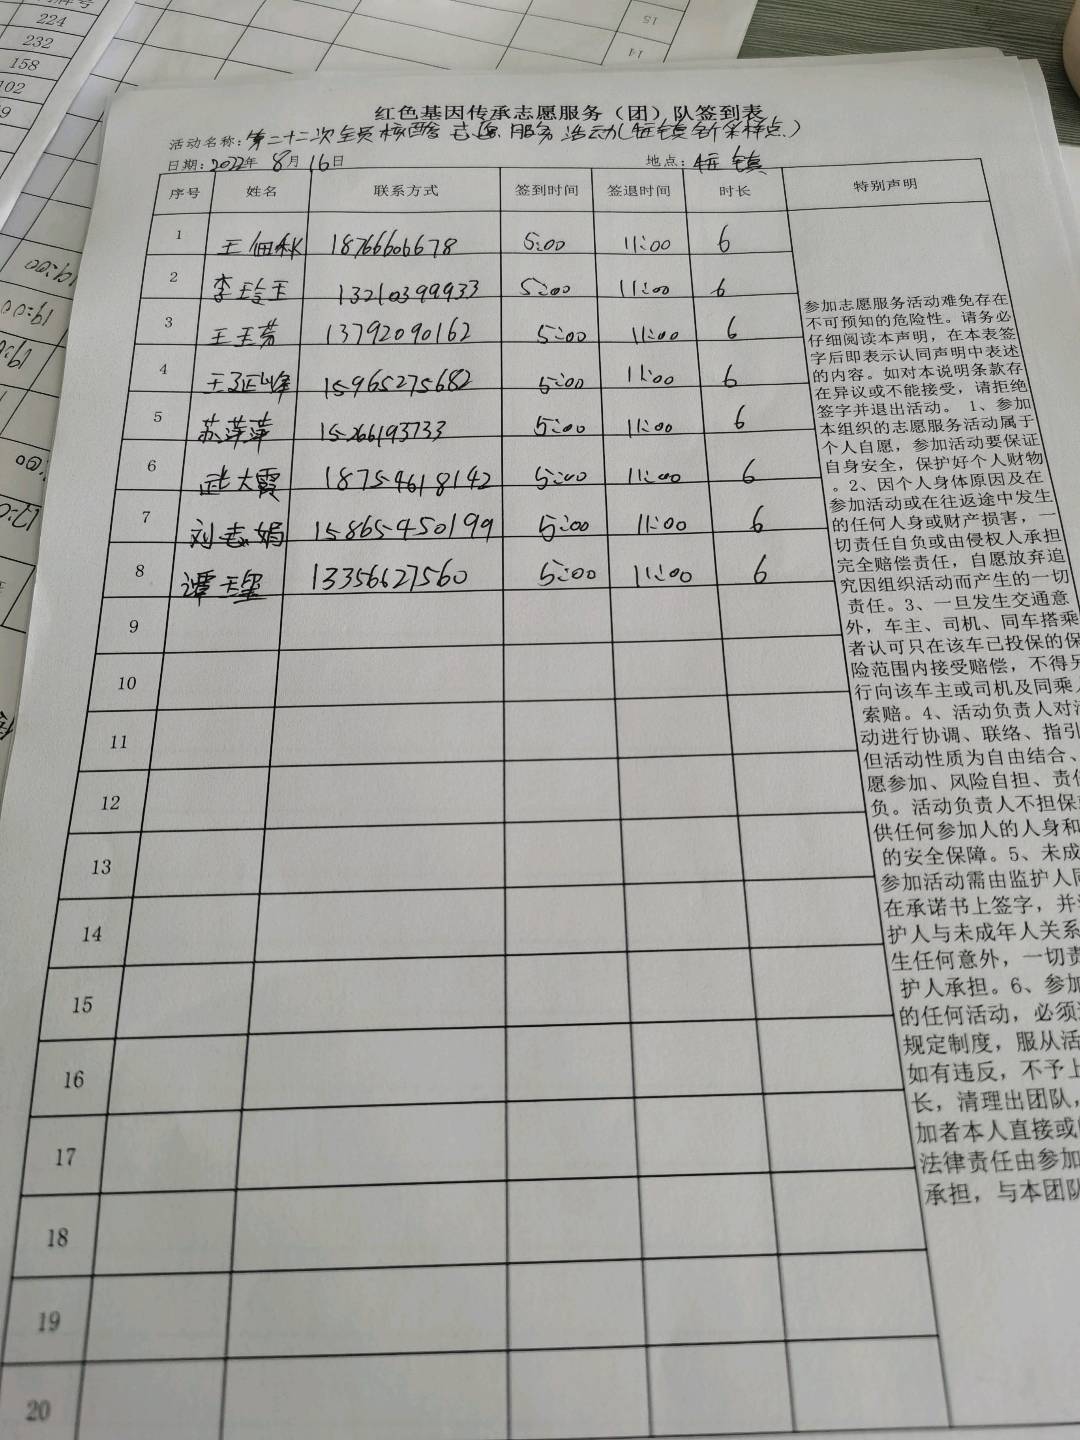 红色基因传承志愿服务（团）队签到表
活动名称：第二十二次全员核酸志愿服务活动（镇采样点）
日期：2022年 8月 16日 地点：镇
序号 姓名 联系方式 签到时间 签退时间 时长 特别声明
1 王佃秋 18766606678 5:00 11:00 6
2 李玲玉 13210399933 5:00 11:00 6
3 王玉芳 13792090162 5:00 11:00 6
4 王延峰 15965275682 5:00 11:00 6
5 苏萍萍 15266193733 5:00 11:00 6
6 武大霞 18754618142 5:00 11:00 6
7 刘志娟 15865450199 5:00 11:00 6
8 谭玉玺 13356627560 5:00 11:00 6
9
10
11
12
13
14
15
16
17
18
19
20
参加志愿服务活动难免存在
不可预知的危险性。请务必
仔细阅读本声明，在本表签
字后即表示认同声明中表述
的内容。如对本说明条款存
在异议或不能接受，请拒绝
签字并退出活动。 1、参加
本组织的志愿服务活动属于
个人自愿，参加活动要保证
自身安全，保护好个人财物
。2、因个人身体原因及在
参加活动或在往返途中发生
的任何人身或财产损害，一
切责任自负或由侵权人承担
完全赔偿责任，自愿放弃追
究因组织活动而产生的一切
责任。3、一旦发生交通意
外，车主、司机、同车搭乘
者认可只在该车已投保的保
险范围内接受赔偿，不得另
行向该车主或司机及同乘人
索赔。4、活动负责人对活
动进行协调、联络、指引
但活动性质为自由结合、
愿参加、风险自担、责任
负。活动负责人不担保
供任何参加人的人身和
的安全保障。5、未成
参加活动需由监护人同
在承诺书上签字，并
护人与未成年人关系
生任何意外，一切责
护人承担。6、参加
的任何活动，必须
规定制度，服从活
如有违反，不予上
长，清理出团队，
加者本人直接或
法律责任由参加
承担，与本团队
224
232
158
102
9
15
14
19:00
19:00